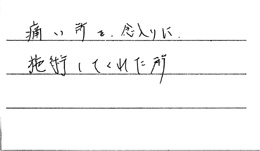 痛い所を、念入りに、
施術してくれた所